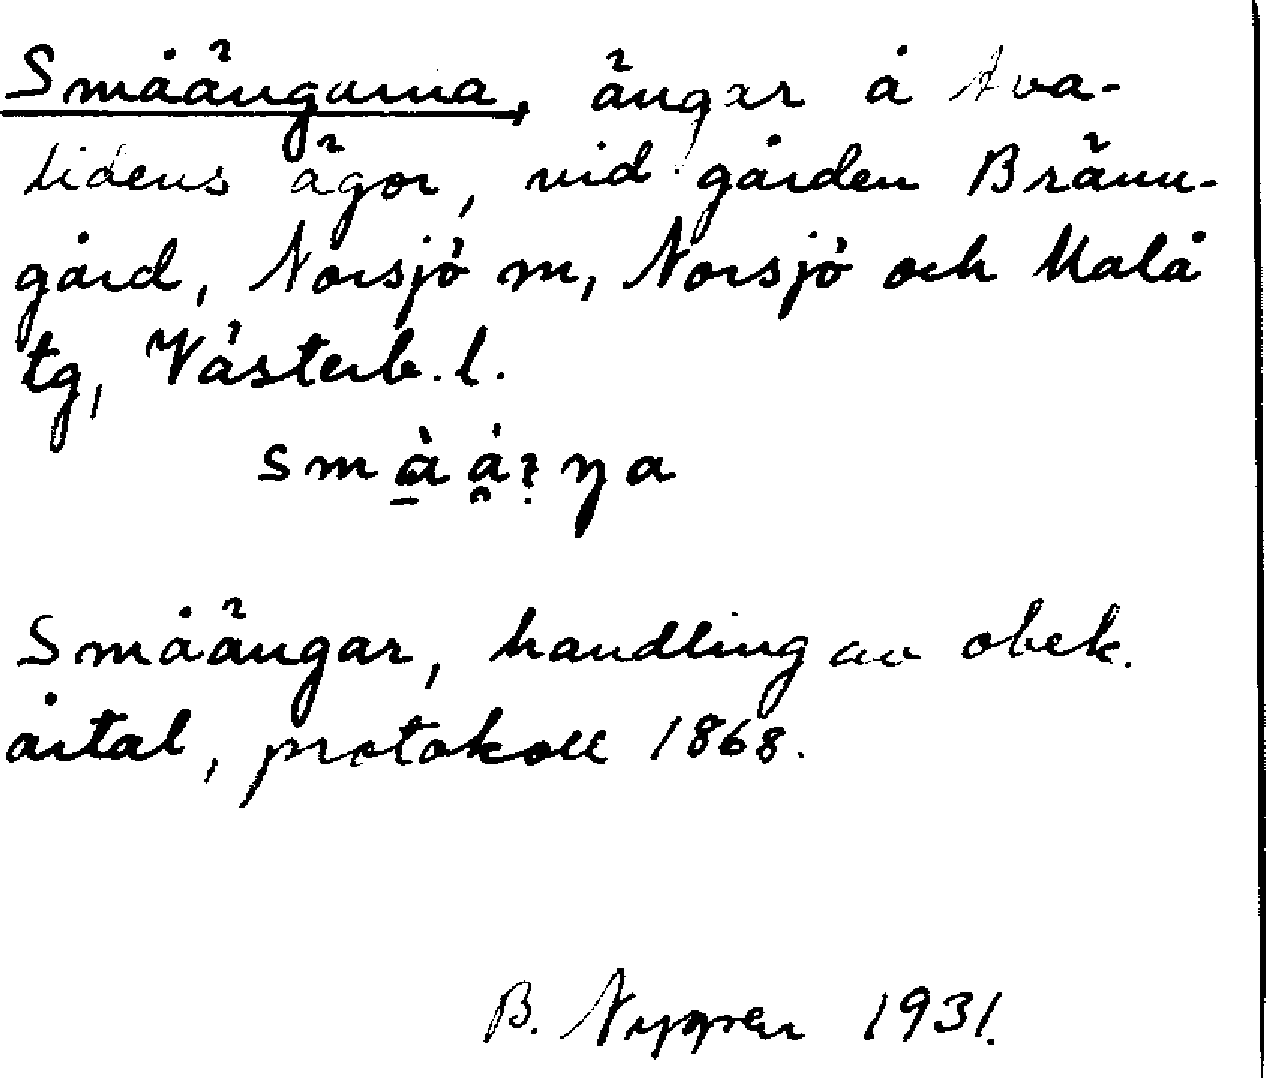 Småängarna, ängar å Ava-
lidens ägor, vid gården Bränn-
gård, Norsjö sn, Norsjö och Malå
tg, Västerb. l.
Småängar, handling av obek.
årtal, protokoll 1868.
B. Nygren 1931.